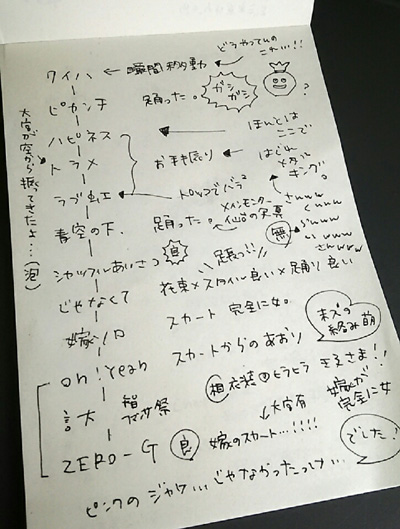 ワイハ ← 瞬間移動
どうやってんの
これ…!!
ピカンチ
踊った。
ガシガシ
?
ハピネス
ほんとは
ここで
トラメ
お手振り
はじれ
メタル
キング。
ラブ虹
トロッコでバラ2
大宮が空から振ってきたよ…(泡)
青空の下、
踊った。
メインモンター
仙台の写真
無
さwww
くwww
らwww
いwww
さwww
シャッフルあいさつ
良
足長っ!!
花束×スタイル良い×踊り良い
じゃなくて
スカート 完全に女。
嫁ソロ
スカートからのあおり
末ズの
絡み萌
oh!Yeah
相 衣装のヒラヒラ きえさま!!
言大
智
コマサ祭
↓大宮有
嫁が
完全に女
ZERO-G
良
嫁のスカート…!!!!
でした!
ピンクのジャケ…じゃなかったっけ…